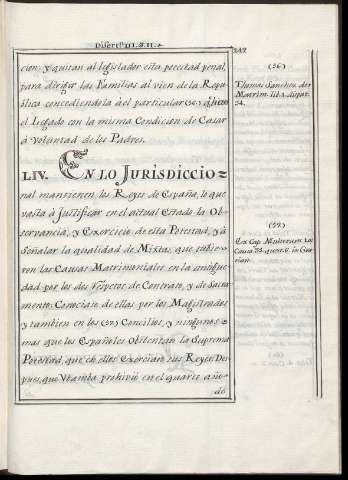 Disert.ⁿ III. §. II.
247
cion, y quitan al legislador esta potestad penal
para dirigir las Familias al vien de la Repu-
blica concediendola á el particular (56) q.
el Legado con la misma Condicion de Casar
á voluntad de los Padres.
LIV. EN LO JURISDICCIO=
nal mantienen los Reyes de España, lo que
vasta á justificar en el actual Estado la Ob-
servancia, y Exercicio de esta Potestad, y á
Señalar la qualidad de Mixtas, que tubie-
ron las Causas Matrimoniales en la antigue-
dad por los dos respetos de Contrato, y de Sacra-
mento: Conocian de ellas por los Magistrados
y tambien en los (57) Concilios, y ningunos
mas que los Españoles Obstentan la Suprema
Potestad, que en ellos Exercian sus Reyes Des-
pues, que Wamba prohivió en el quarto
do
(56)
Thomas Sanchez de
Matrim. lib. 1. disput.
34.
(57)
Ex Cap. Multorum
Causa 35. quest. 6. in Gra-
cian.